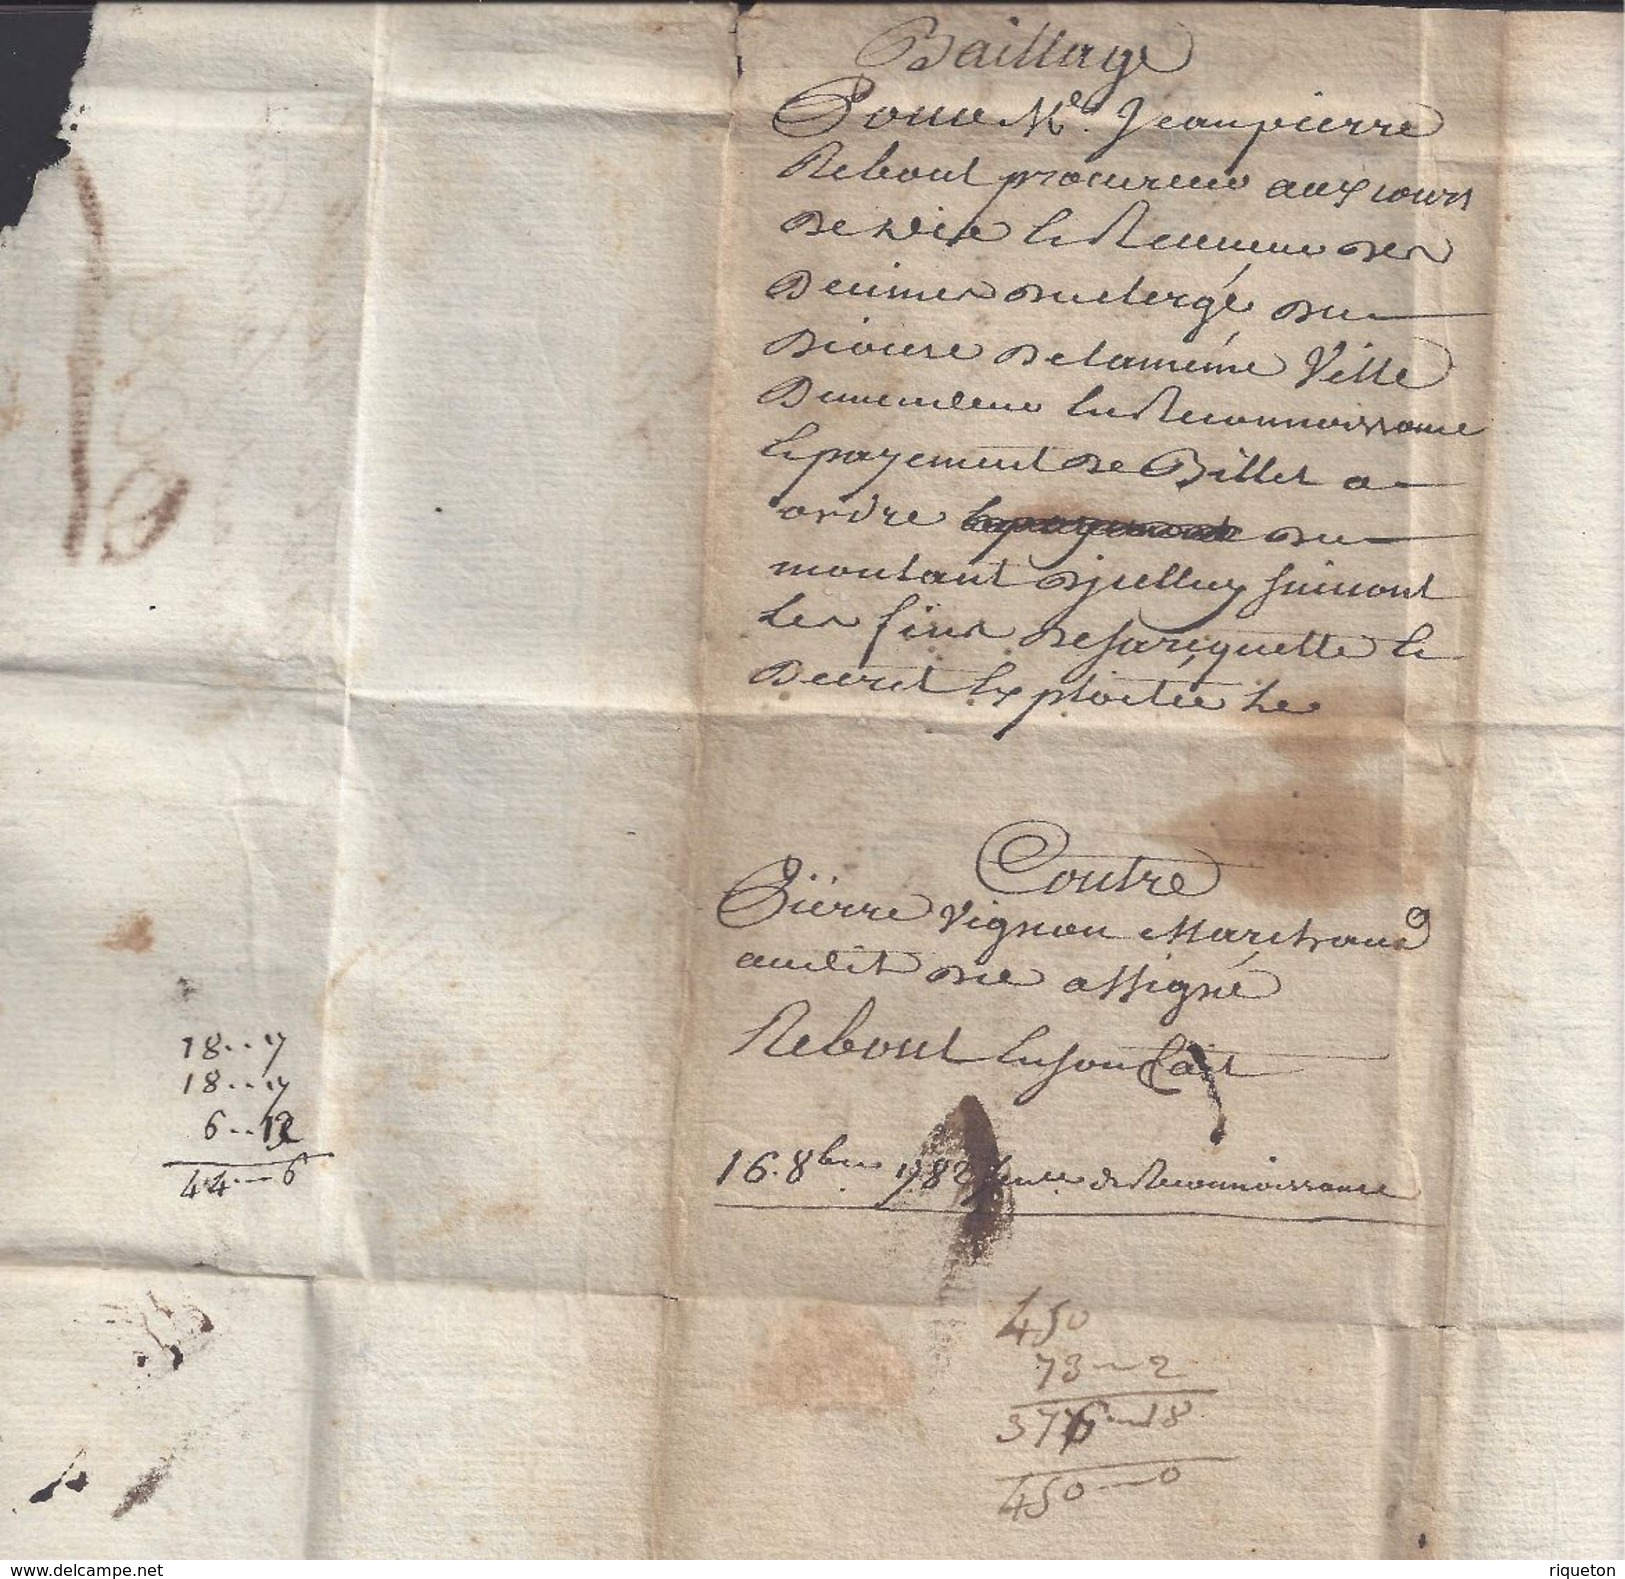 Baillage
Pour Me. Jeanpierre
Rebout procureur aux cours
de Die le Receveur des
Decimes du clergé du
Diocese de la même Ville
Demandeur en Reconnoissance
le payement de Billet a
ordre du
montant d'jcelluy suivant
les fins de sa requette le
Decret Exploitée le
Contre
Pierre Vignon Marchand
audit Die assigné
Rebout en son fait
16. 8bre 1782 de Reconnoissance
18..7
18..7
6..12
44--6
450
73--2
376--18
450--0
delcampe.net
riqueton